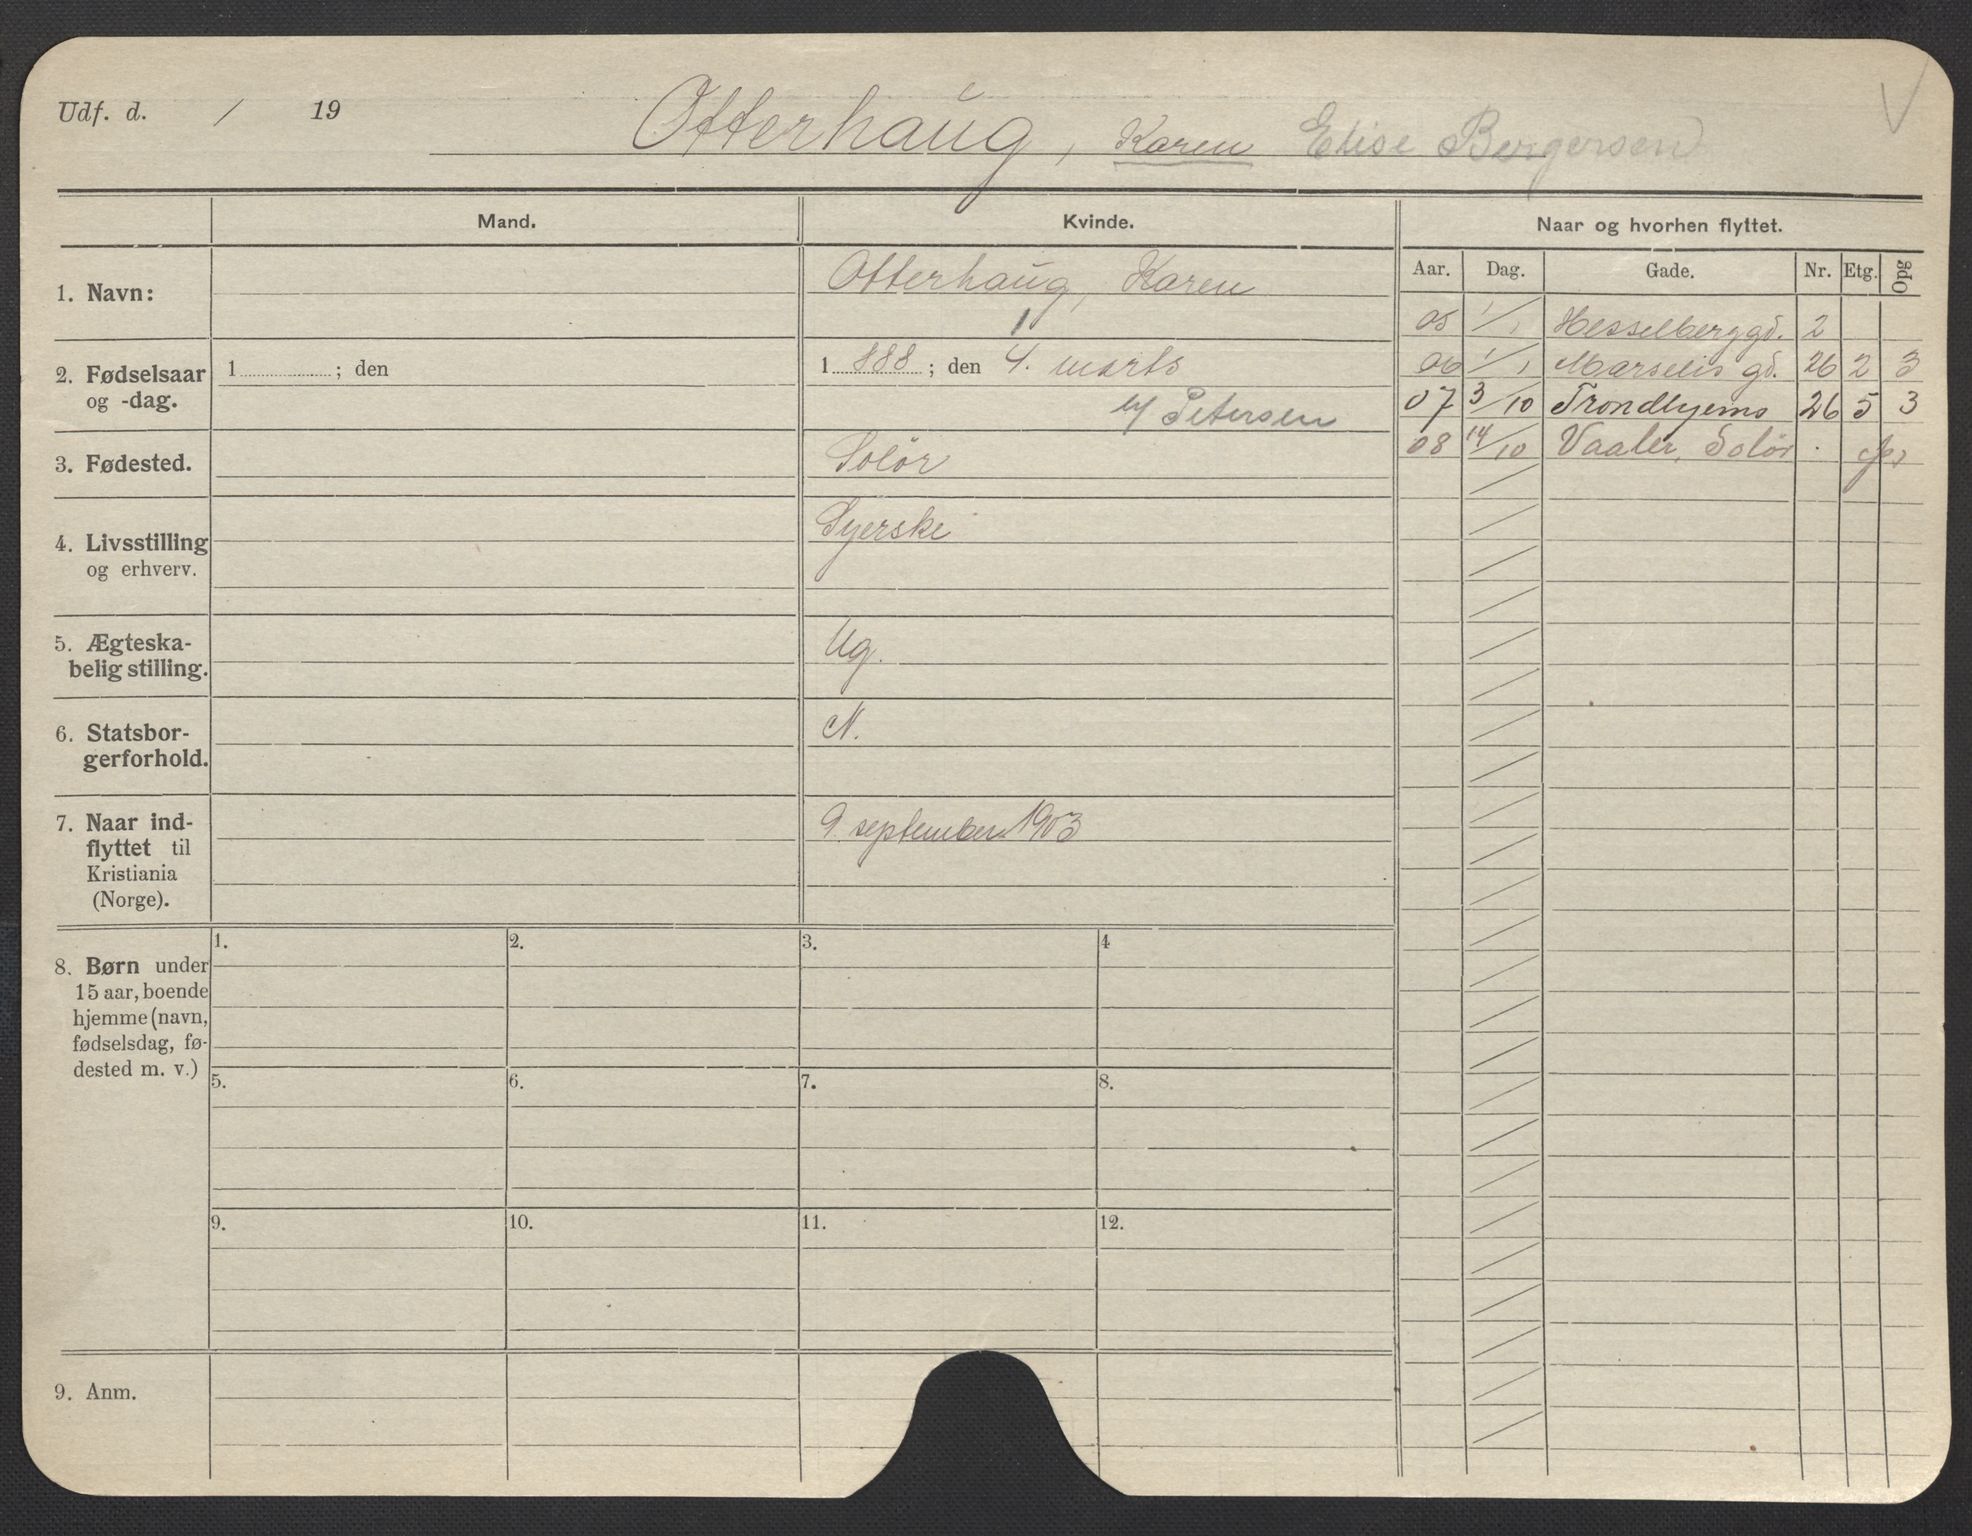 Udf. d. / 19
Otterhaug, Karen Elise Bergersen
Mand.
Kvinde.
Naar og hvorhen flyttet.
Aar. Dag. Gade. Nr. Etg. Opg
1. Navn:
Otterhaug, Karen
2. Fødselsaar
og -dag.
1 ; den
1 888 ; den 4. marts
Petersen
3. Fødested.
Solör
4. Livsstilling
og erhverv.
Syerske
5. Ægteska-
belig stilling.
Ug.
6. Statsbor-
gerforhold.
N.
7. Naar ind-
flyttet til
Kristiania
(Norge).
9. september 1903
05 1/1 Hesselberggd. 2
06 1/1 Marselis gd. 26 2 3
07 3/10 Trondhjems 26 5 3
08 14/10 Vaaler, Solör
8. Børn under
15 aar, boende
hjemme (navn,
fødselsdag, fø-
dested m. v.)
1. 2. 3. 4
5. 6. 7. 8.
9. 10. 11. 12.
9. Anm.